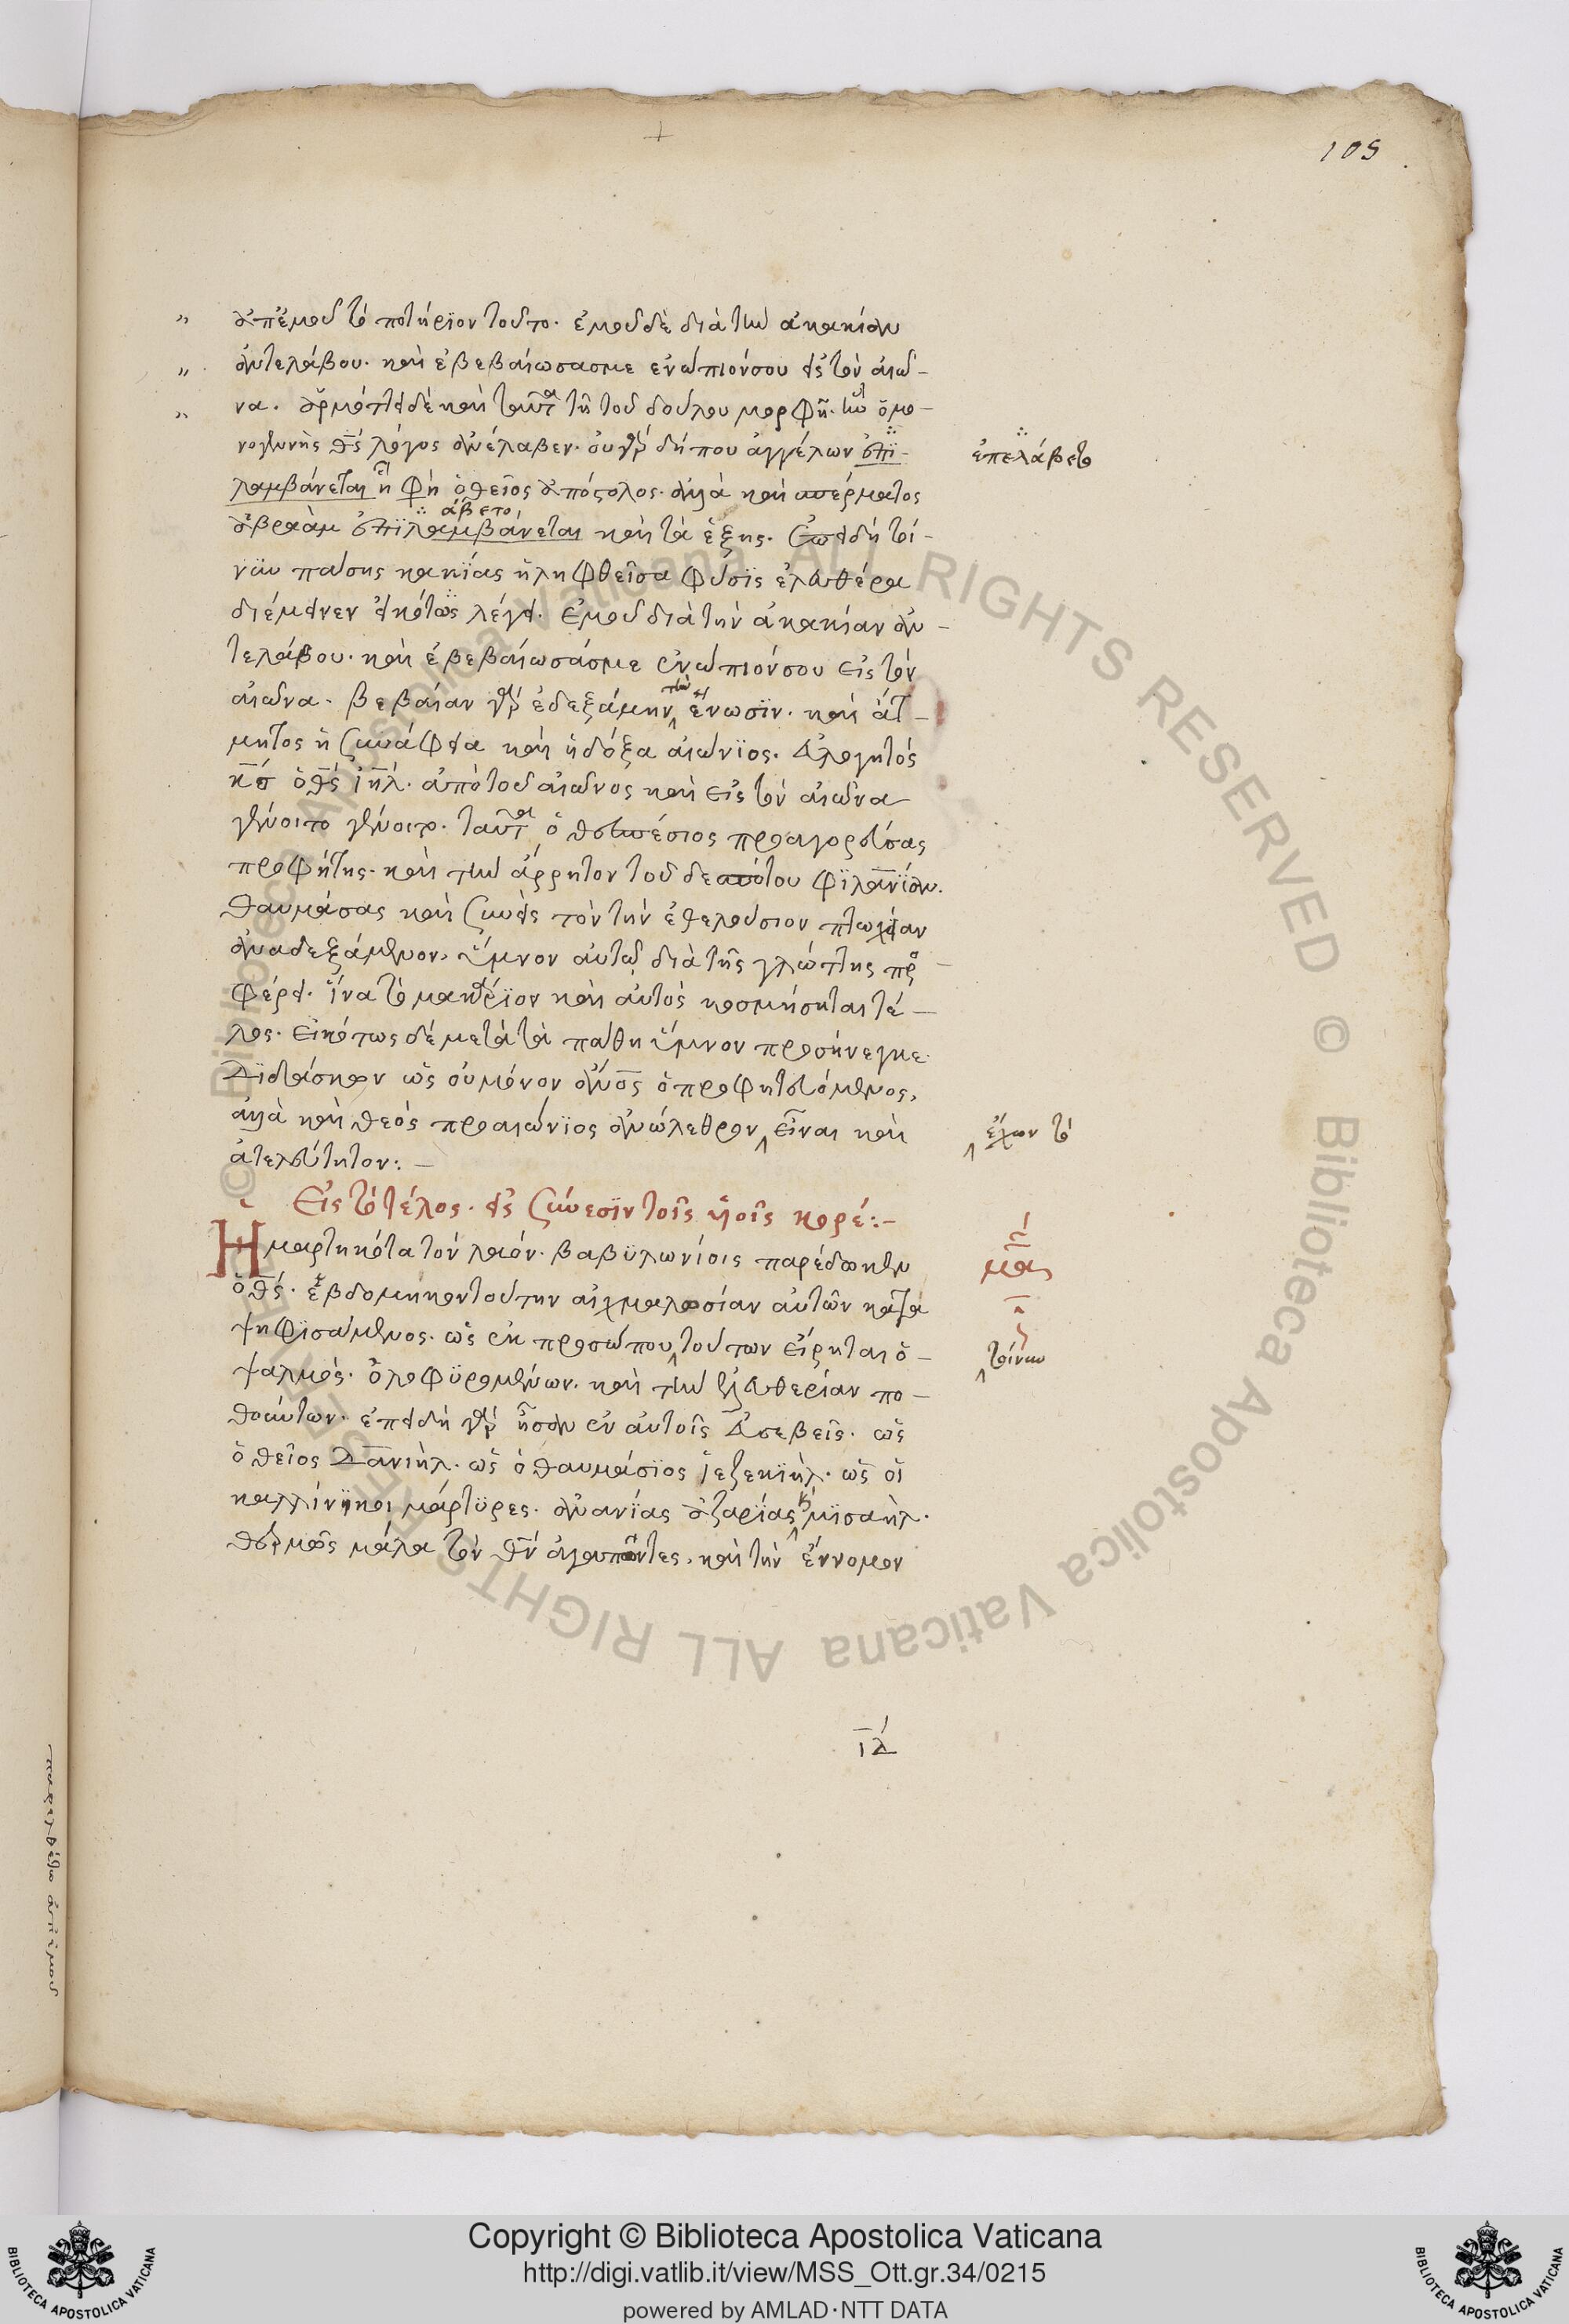 109
ἀπ' ἐμοῦ τὸ ποτήριον τοῦτο. ἐμοῦ δὲ διὰ τὴν ἀκακίαν
ἀντελάβου. καὶ ἐβεβαίωσάς με ἐνώπιόν σου εἰς τὸν αἰῶ-
να. ἁρμόττει δὲ καὶ ταῦτα τῇ τοῦ δούλου μορφῇ. ἣν ὁ μο-
νογενὴς θς λόγος ἀνέλαβεν. οὐ γὰρ δήπου ἀγγέλων ἐπι-
ἐπελάβετο
λαμβάνεται ᾗ φη ὁ θεῖος ἀπόστολος. ἀλλὰ καὶ σπέρματος
άβετο
ἀβραὰμ ἐπιλαμβάνεται καὶ τὰ ἑξῆς. ἐπειδὴ τοί-
νυν πάσης κακίας ἡ ληφθεῖσα φύσις ἐλευθέρα
διέμεινεν εἰκότως λέγει. ἐμοῦ διὰ τὴν ἀκακίαν ἀν-
τελάβου. καὶ ἐβεβαίωσάς με ἐνώπιόν σου εἰς τὸν
αἰῶνα. βεβαίαν γὰρ ἐδεξάμην τὴν ἕνωσιν. καὶ ἄτ-
μητος ἡ συνάφεια καὶ ἡ δόξα αἰώνιος. εὐλογητὸς
κς ὁ θς ιηλ. ἀπὸ τοῦ αἰῶνος καὶ εἰς τὸν αἰῶνα
γένοιτο γένοιτο. ταῦτα ὁ θεσπέσιος προαγορεύσας
προφήτης. καὶ τὴν ἄρρητον τοῦ δεσπότου φιλανίαν.
θαυμάσας καὶ συνεὶς τὸν τὴν ἐθελούσιον πτωχείαν
ἀναδεξάμενον, ὕμνον αὐτῷ διὰ τῆς γλώττης προς-
φέρει. ἵνα τὸ μακάριον καὶ αὐτὸς κοσμήσηται τέ-
λος. εἰκότως δὲ μετὰ τὰ πάθη ὕμνον προσήνεγκε.
διδάσκων ὡς οὐ μόνον ανος ὁ προφητευόμενος,
ἀλλὰ καὶ θεὸς προαιώνιος ἀνώλεθρον εἶναι καὶ
ἔχων τὸ
ἀτελεύτητον:-
Εἰς τὸ τέλος. εἰς σύνεσιν τοῖς υἱοῖς κορέ:-
Ἡμαρτηκότα τὸν λαόν. βαβυλωνίοις παρέδωκεν
μα
ὁ θς. ἑβδομηκοντούτην αἰχμαλωσίαν αὐτῶν κατα
ψηφισάμενος. ὡς ἐκ προσώπου τούτων εἴρηται ὁ-
τοίνυν
ψαλμός. ὀλοφυρομένων. καὶ τὴν ἐλευθερίαν πο-
θούντων. ἐπειδὴ γὰρ ἦσαν ἐν αὐτοῖς εὐσεβεῖς. ὡς
ὁ θεῖος δανιὴλ. ὡς ὁ θαυμάσιος ἰεζεκιὴλ. ὡς οἱ
καλλίνικοι μάρτυρες. ἀνανίας ἀζαρίας κ μισαὴλ.
θερμῶς μάλα τὸν θν ἀγαπῶντες. καὶ τὴν ἔννομον
ιδ
παρελθέτω ἀπ' ἐμοῦ
© Biblioteca Apostolica Vaticana ALL RIGHTS RESERVED © Biblioteca Apostolica Vaticana ALL RIGHTS RESERVED
Copyright © Biblioteca Apostolica Vaticana
http://digi.vatlib.it/view/MSS_Ott.gr.34/0215
powered by AMLAD·NTT DATA
BIBLIOTECA APOSTOLICA VATICANA
BIBLIOTECA APOSTOLICA VATICANA